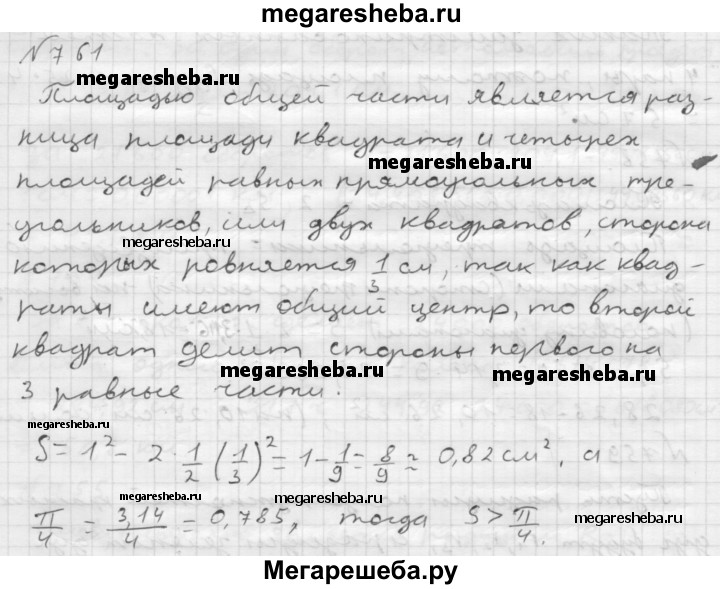 megaresheba.ru
N761
megaresheba.ru
Площадью общей части является раз-
ница площади квадрата и четырех
megaresheba.ru
площадей равных прямоугольных тре-
угольников, или двух квадратов, сторона
megaresheba.ru
которых ровняется 1/3 см, так как квад-
раты имеют общий центр, то второй
квадрат делит стороны первого на
megaresheba.ru megaresheba.ru
3 равные части.
megaresheba.ru
S = 1² - 2 · 1/2 (1/3)² = 1 - 1/9 = 8/9 ≈ 0,82 см², а
megaresheba.ru megaresheba.ru
π/4 = 3,14/4 = 0,785, тогда S > π/4.
megaresheba.ru
Мегарешеба.ру